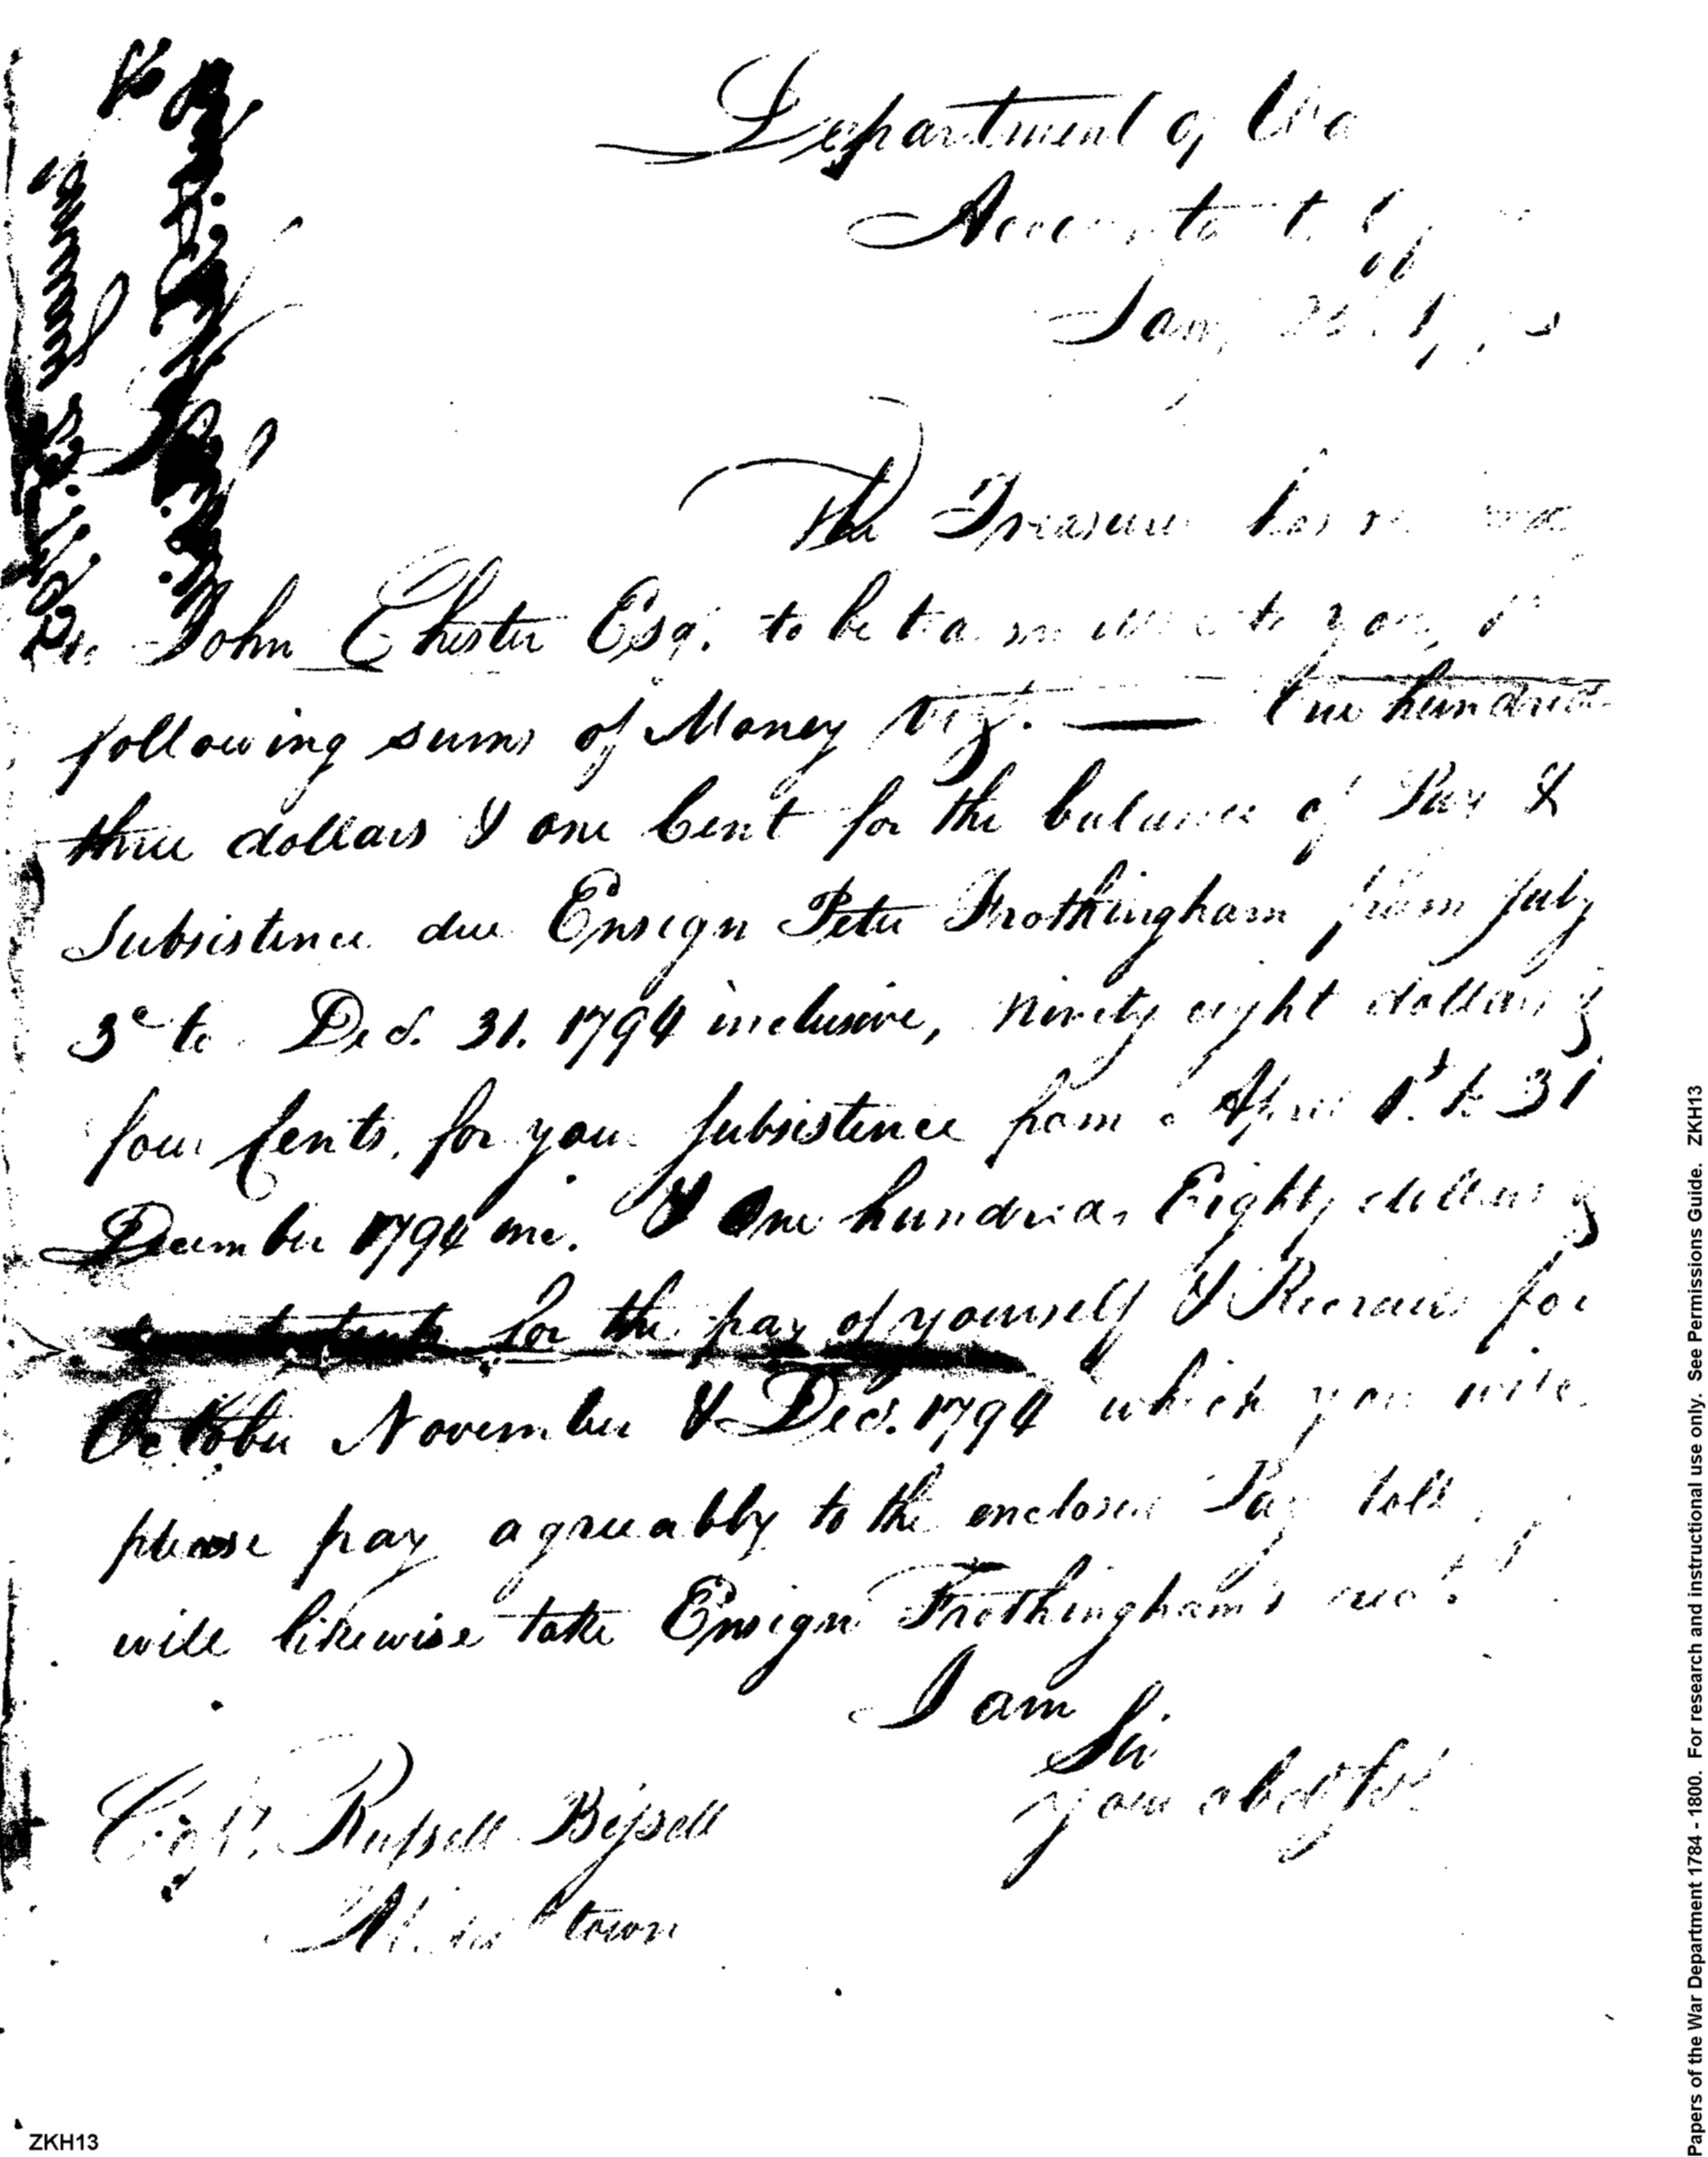 Department of Wa
Accountant
Jany
The Treasurer has
John Chester Esq. to be to you
following sums of Money vizt. — One hundred
three dollars & one Cent for the balance of Pay &
Subsistence due Ensign Peter Frothingham from July
3d to Decr. 31. 1794 inclusive, ninety eight dollars &
four Cents, for your Subsistence from April 1st to 31
December 1794 inc. & One hundred Eighty dollars &
Cents for the pay of yourself & Recruits for
October November & Decr. 1794 which you will
please pay agreeably to the enclosed Pay Roll
will likewise take Ensign Frothingham's rect.
I am
Sir
your
Capt. Russell Bissell
town
ZKH13
Papers of the War Department 1784 - 1800. For research and instructional use only. See Permissions Guide. ZKH13